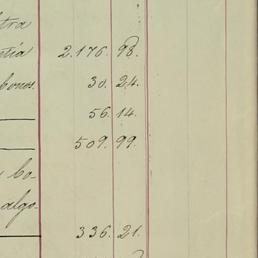 tra
tia 2.176. 98.
bones. 30. 24.
56. 14.
509. 99.
y bo-
algo-
336. 21.